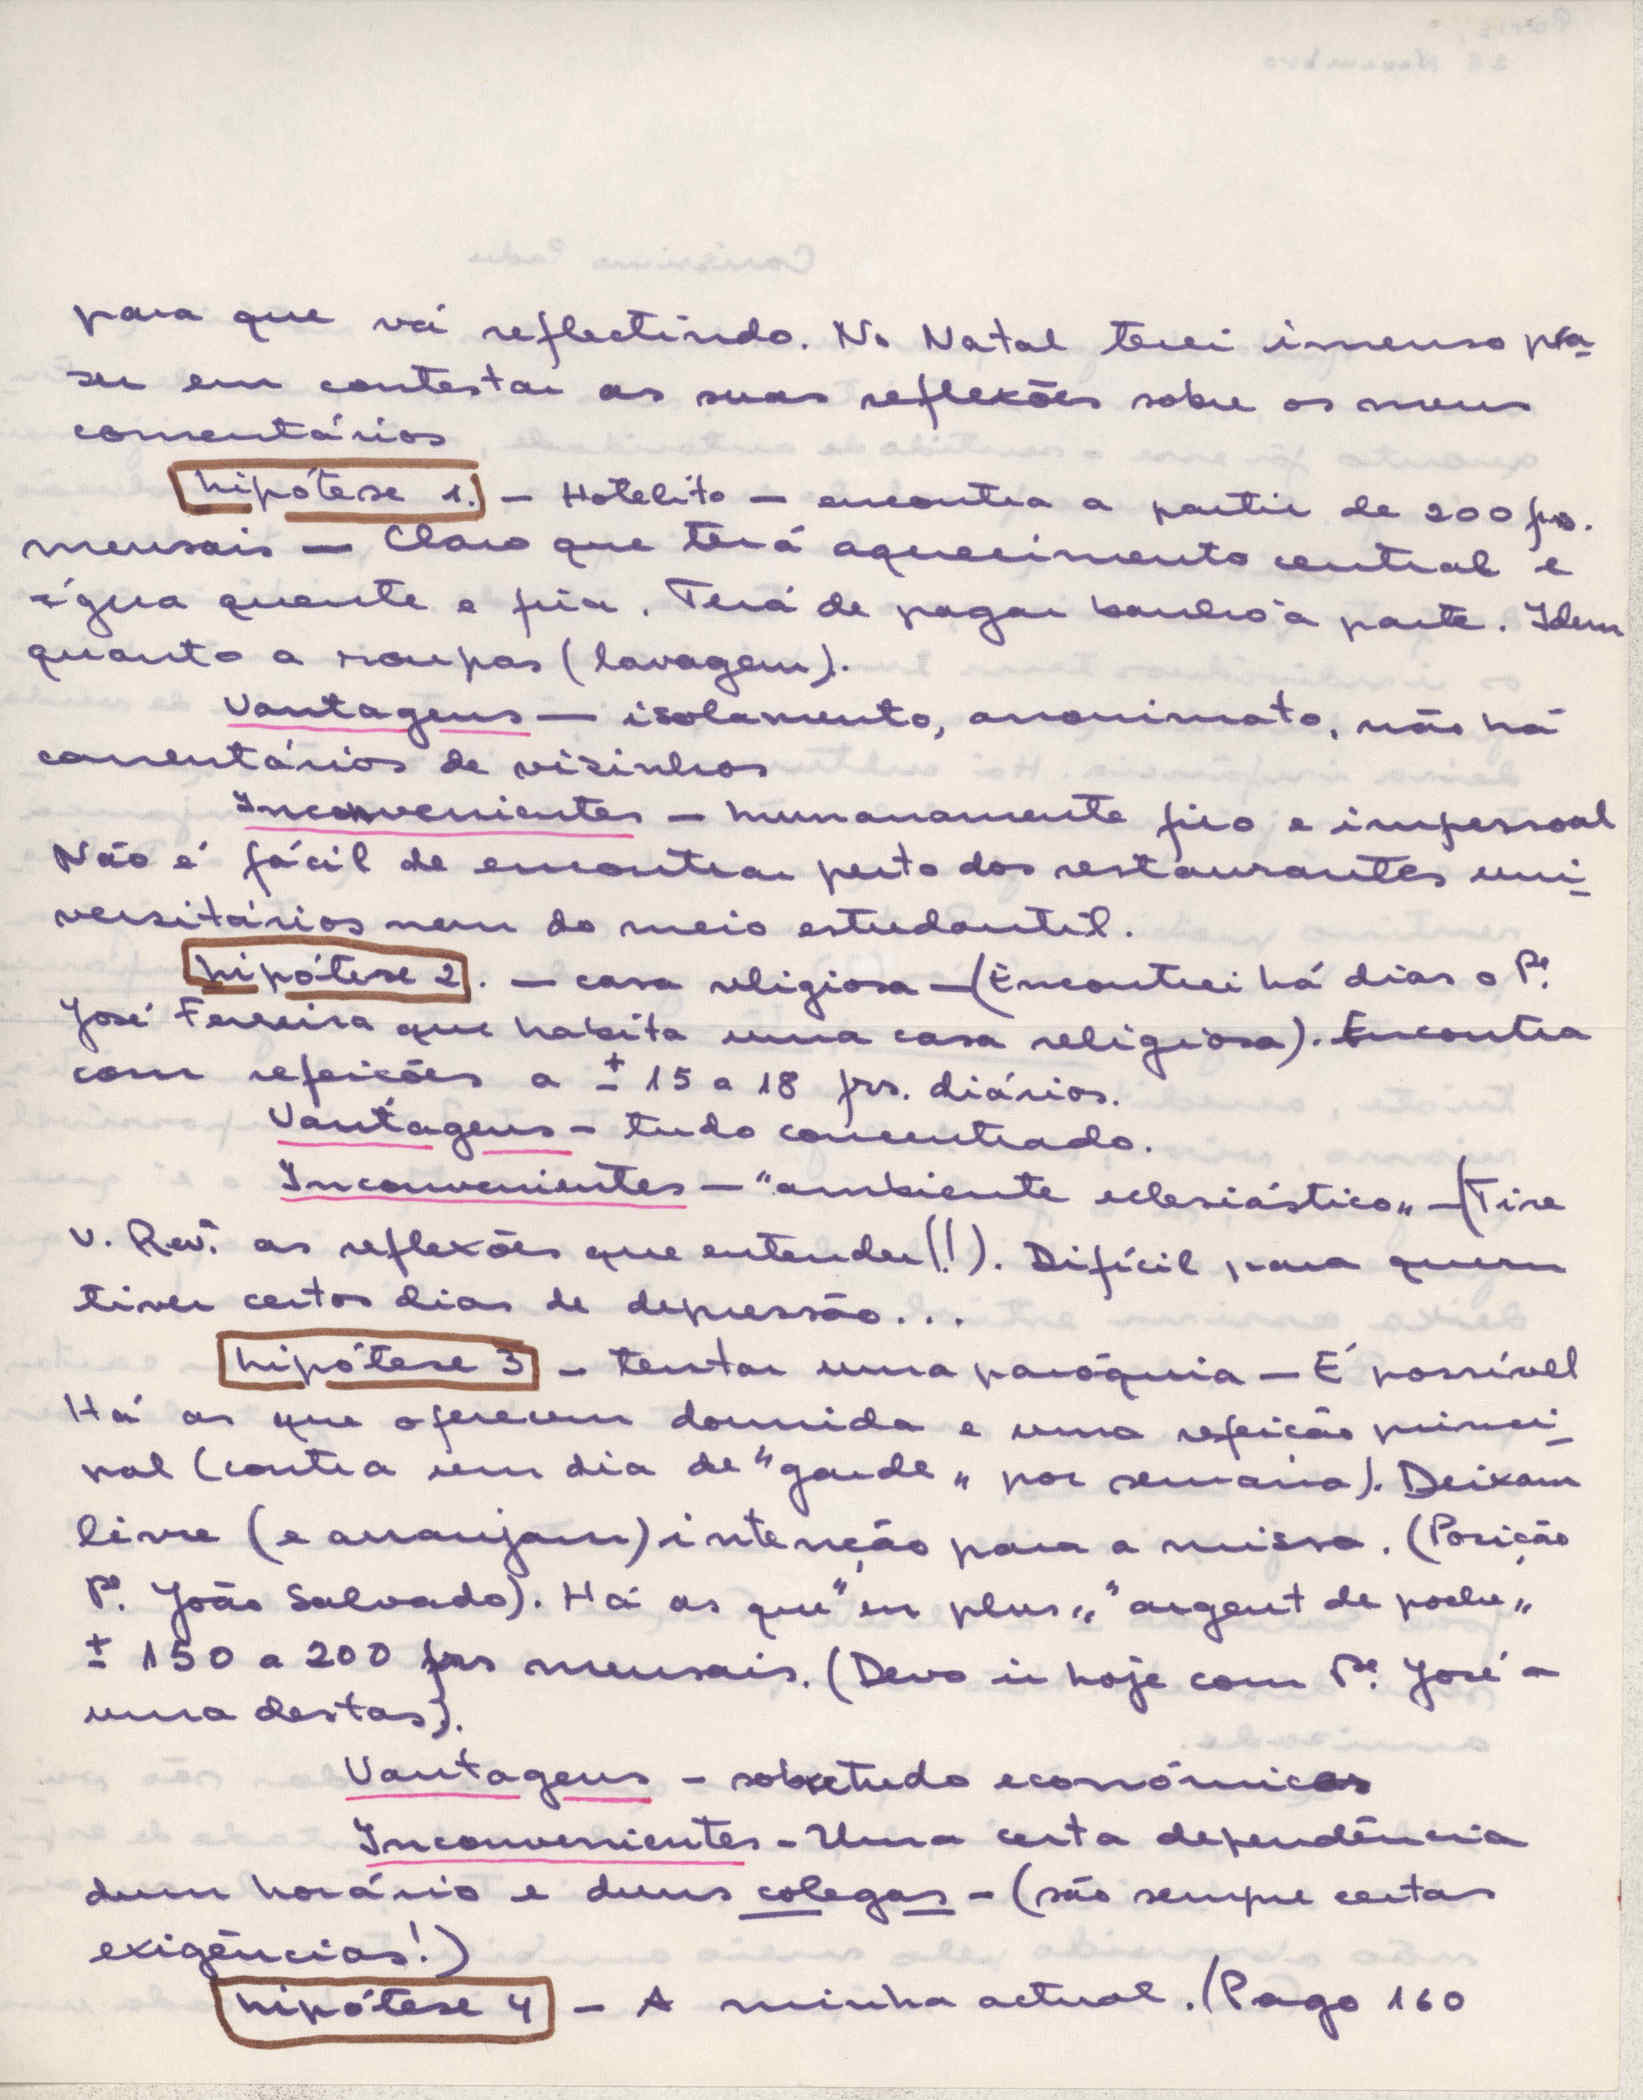 para que vá reflectindo. No Natal terei imenso pra-
ser em contestar as suas reflexões sobre os meus
comentários
hipótese 1. - Hotelito - encontra a partir de 200 frs.
mensais - Claro que terá aquecimento central e
água quente e fria. Terá de pagar banho à parte. Idem
quanto a roupas (lavagem).
Vantagens - isolamento, anonimato, não há
comentários de visinhos
Inconvenientes - humanamente frio e impessoal
Não é fácil de encontrar perto dos restaurantes uni-
versitários nem do meio estudantil.
hipótese 2. - casa religiosa - (Encontrei há dias o Pe.
José Ferreira que habita uma casa religiosa). Encontra
com refeições a ± 15 a 18 frs. diários.
Vantagens - tudo concentrado.
Inconvenientes - "ambiente eclesiástico" - (Tire
V. Rev. as reflexões que entender(!!). Difícil para quem
tiver certos dias de depressão...
hipótese 3 - tentar uma paróquia - É possível
Há as que oferecem dormida e uma refeição princi-
pal (contra um dia de "garde" por semana). Deixam
livre (e arranjam) intenção para a missa. (Posição
Pe. João Salvado). Há as que "en plus" "argent de poche"
± 150 a 200 frs mensais. (Devo ir hoje com Pe. José a
uma destas).
Vantagens - sobretudo económicas
Inconvenientes - Uma certa dependência
dum horário e duns colegas - (são sempre certas
exigências!)
hipótese 4 - A minha actual. (Pago 160